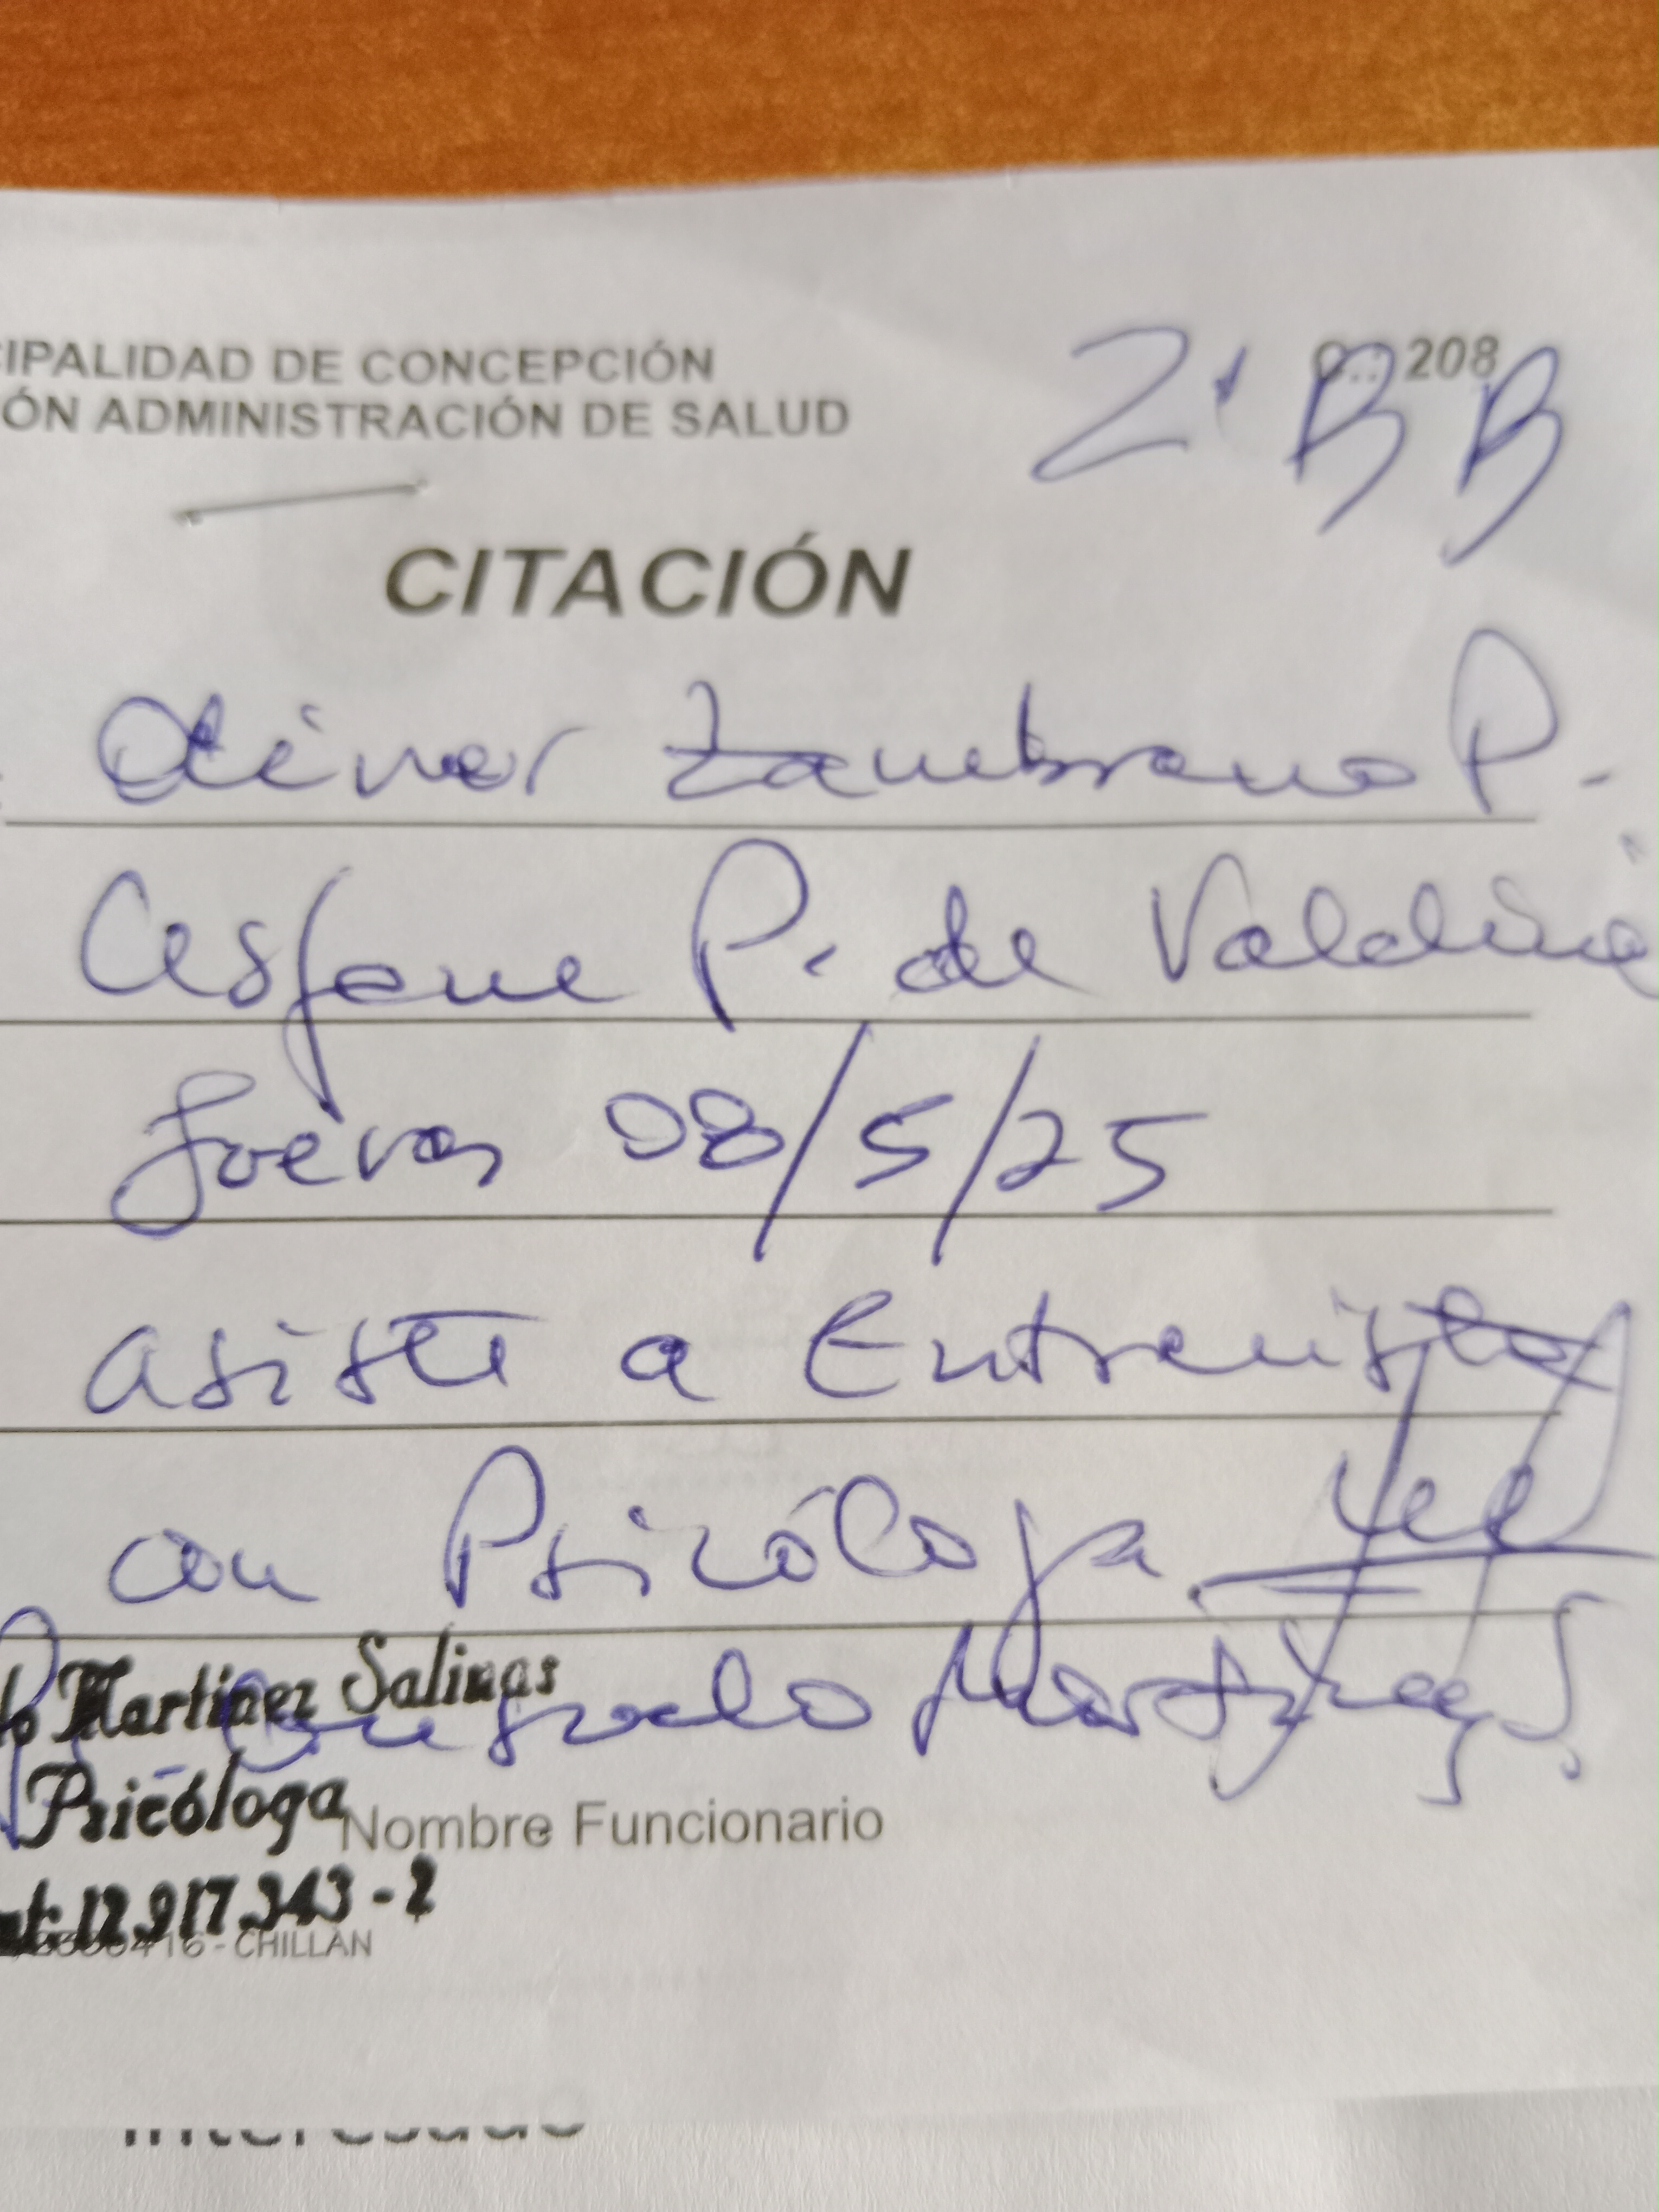 CIPALIDAD DE CONCEPCIÓN
ÓN ADMINISTRACIÓN DE SALUD
208
2° BB
CITACIÓN
Oliver Zambrano P.
Cesfam P. de Valdivia
Jueves 08/5/25
asiste a Entrevista
con Psicóloga.
Consuelo Martínez S.
lo Martinez Salinas
Psicóloga
Nombre Funcionario
ut: 12.917.343-2
416 - CHILLÁN
Interesado